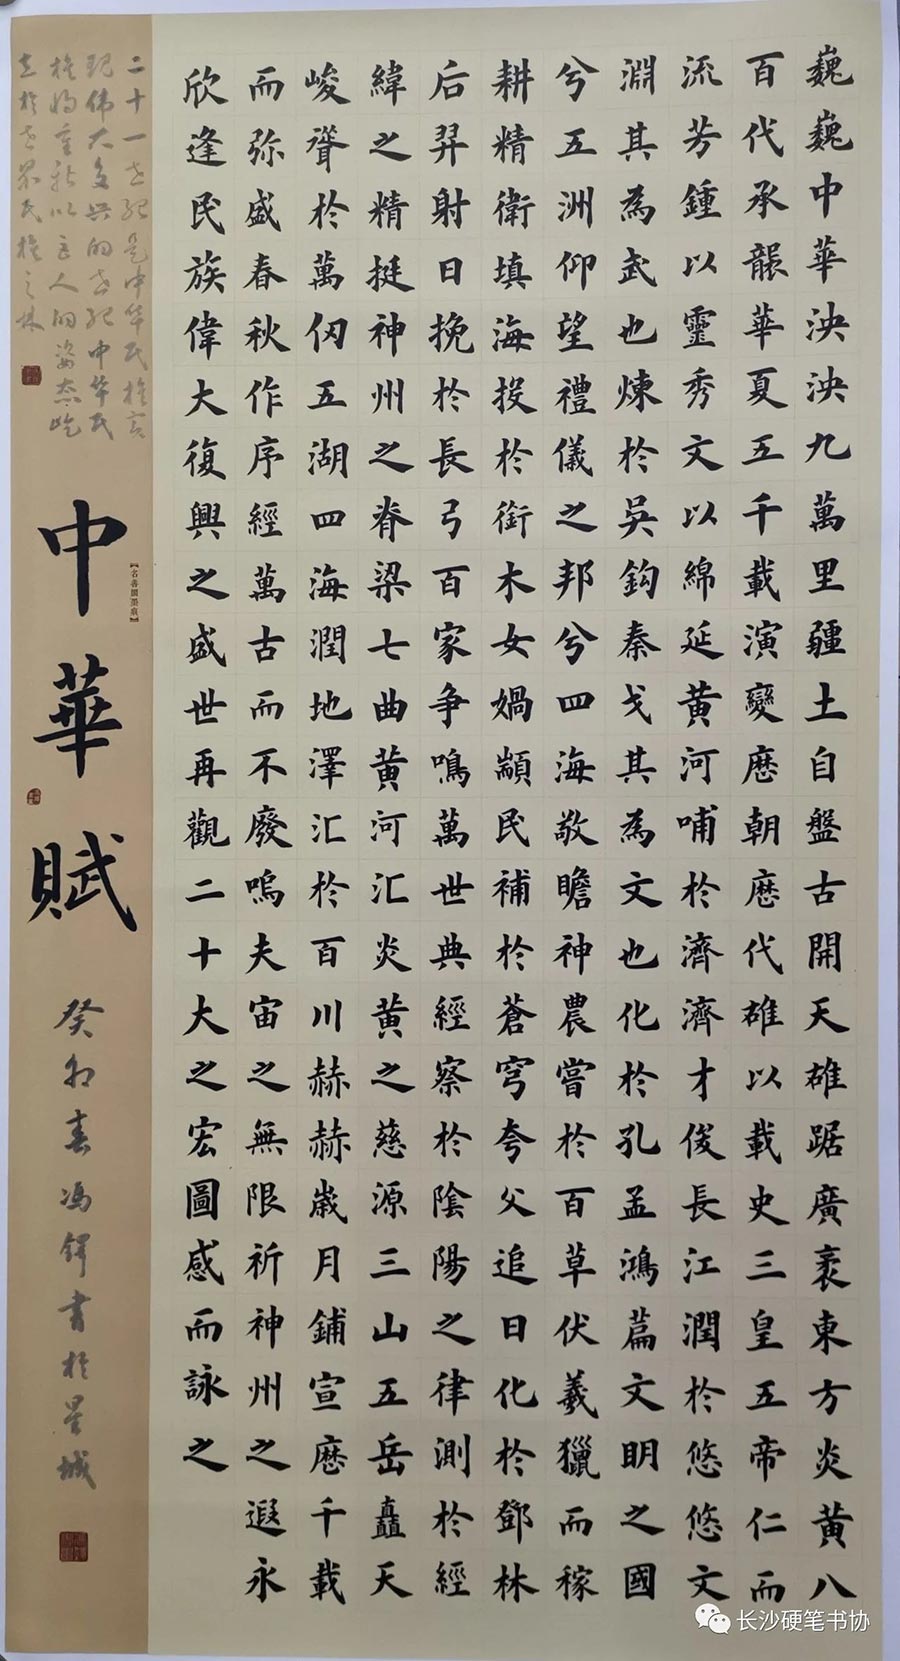 巍巍中華泱泱九萬里疆土自盤古開天雄踞廣袤東方炎黃八
百代承龑華夏五千載演變歷朝歷代雄以載史三皇五帝仁而
流芳鍾以靈秀文以綿延黃河哺於濟濟才俊長江潤於悠悠文
淵其為武也煉於吳鈎秦戈其為文也化於孔孟鴻篇文明之國
兮五洲仰望禮儀之邦兮四海敬瞻神農嘗於百草伏羲獵而稼
耕精衛填海投於銜木女媧顓民補於蒼穹夸父追日化於鄧林
后羿射日挽於長弓百家争鳴萬世典經察於陰陽之律測於經
緯之精挺神州之脊梁七曲黃河汇炎黃之慈源三山五岳矗天
峻聳於萬仞五湖四海潤地澤汇於百川赫赫歲月鋪宣歷千載
而弥盛春秋作序經萬古而不廢嗚夫宙之無限祈神州之遐永
欣逢民族偉大復興之盛世再觀二十大之宏圖感而詠之
二十一世紀是中华民族六
现伟大复兴的世紀中华民
族将重新以巨人的姿态屹
立於世界民族之林
中華賦
【名喜閣墨痕】
癸卯春冯鐸書於星城
长沙硬笔书协